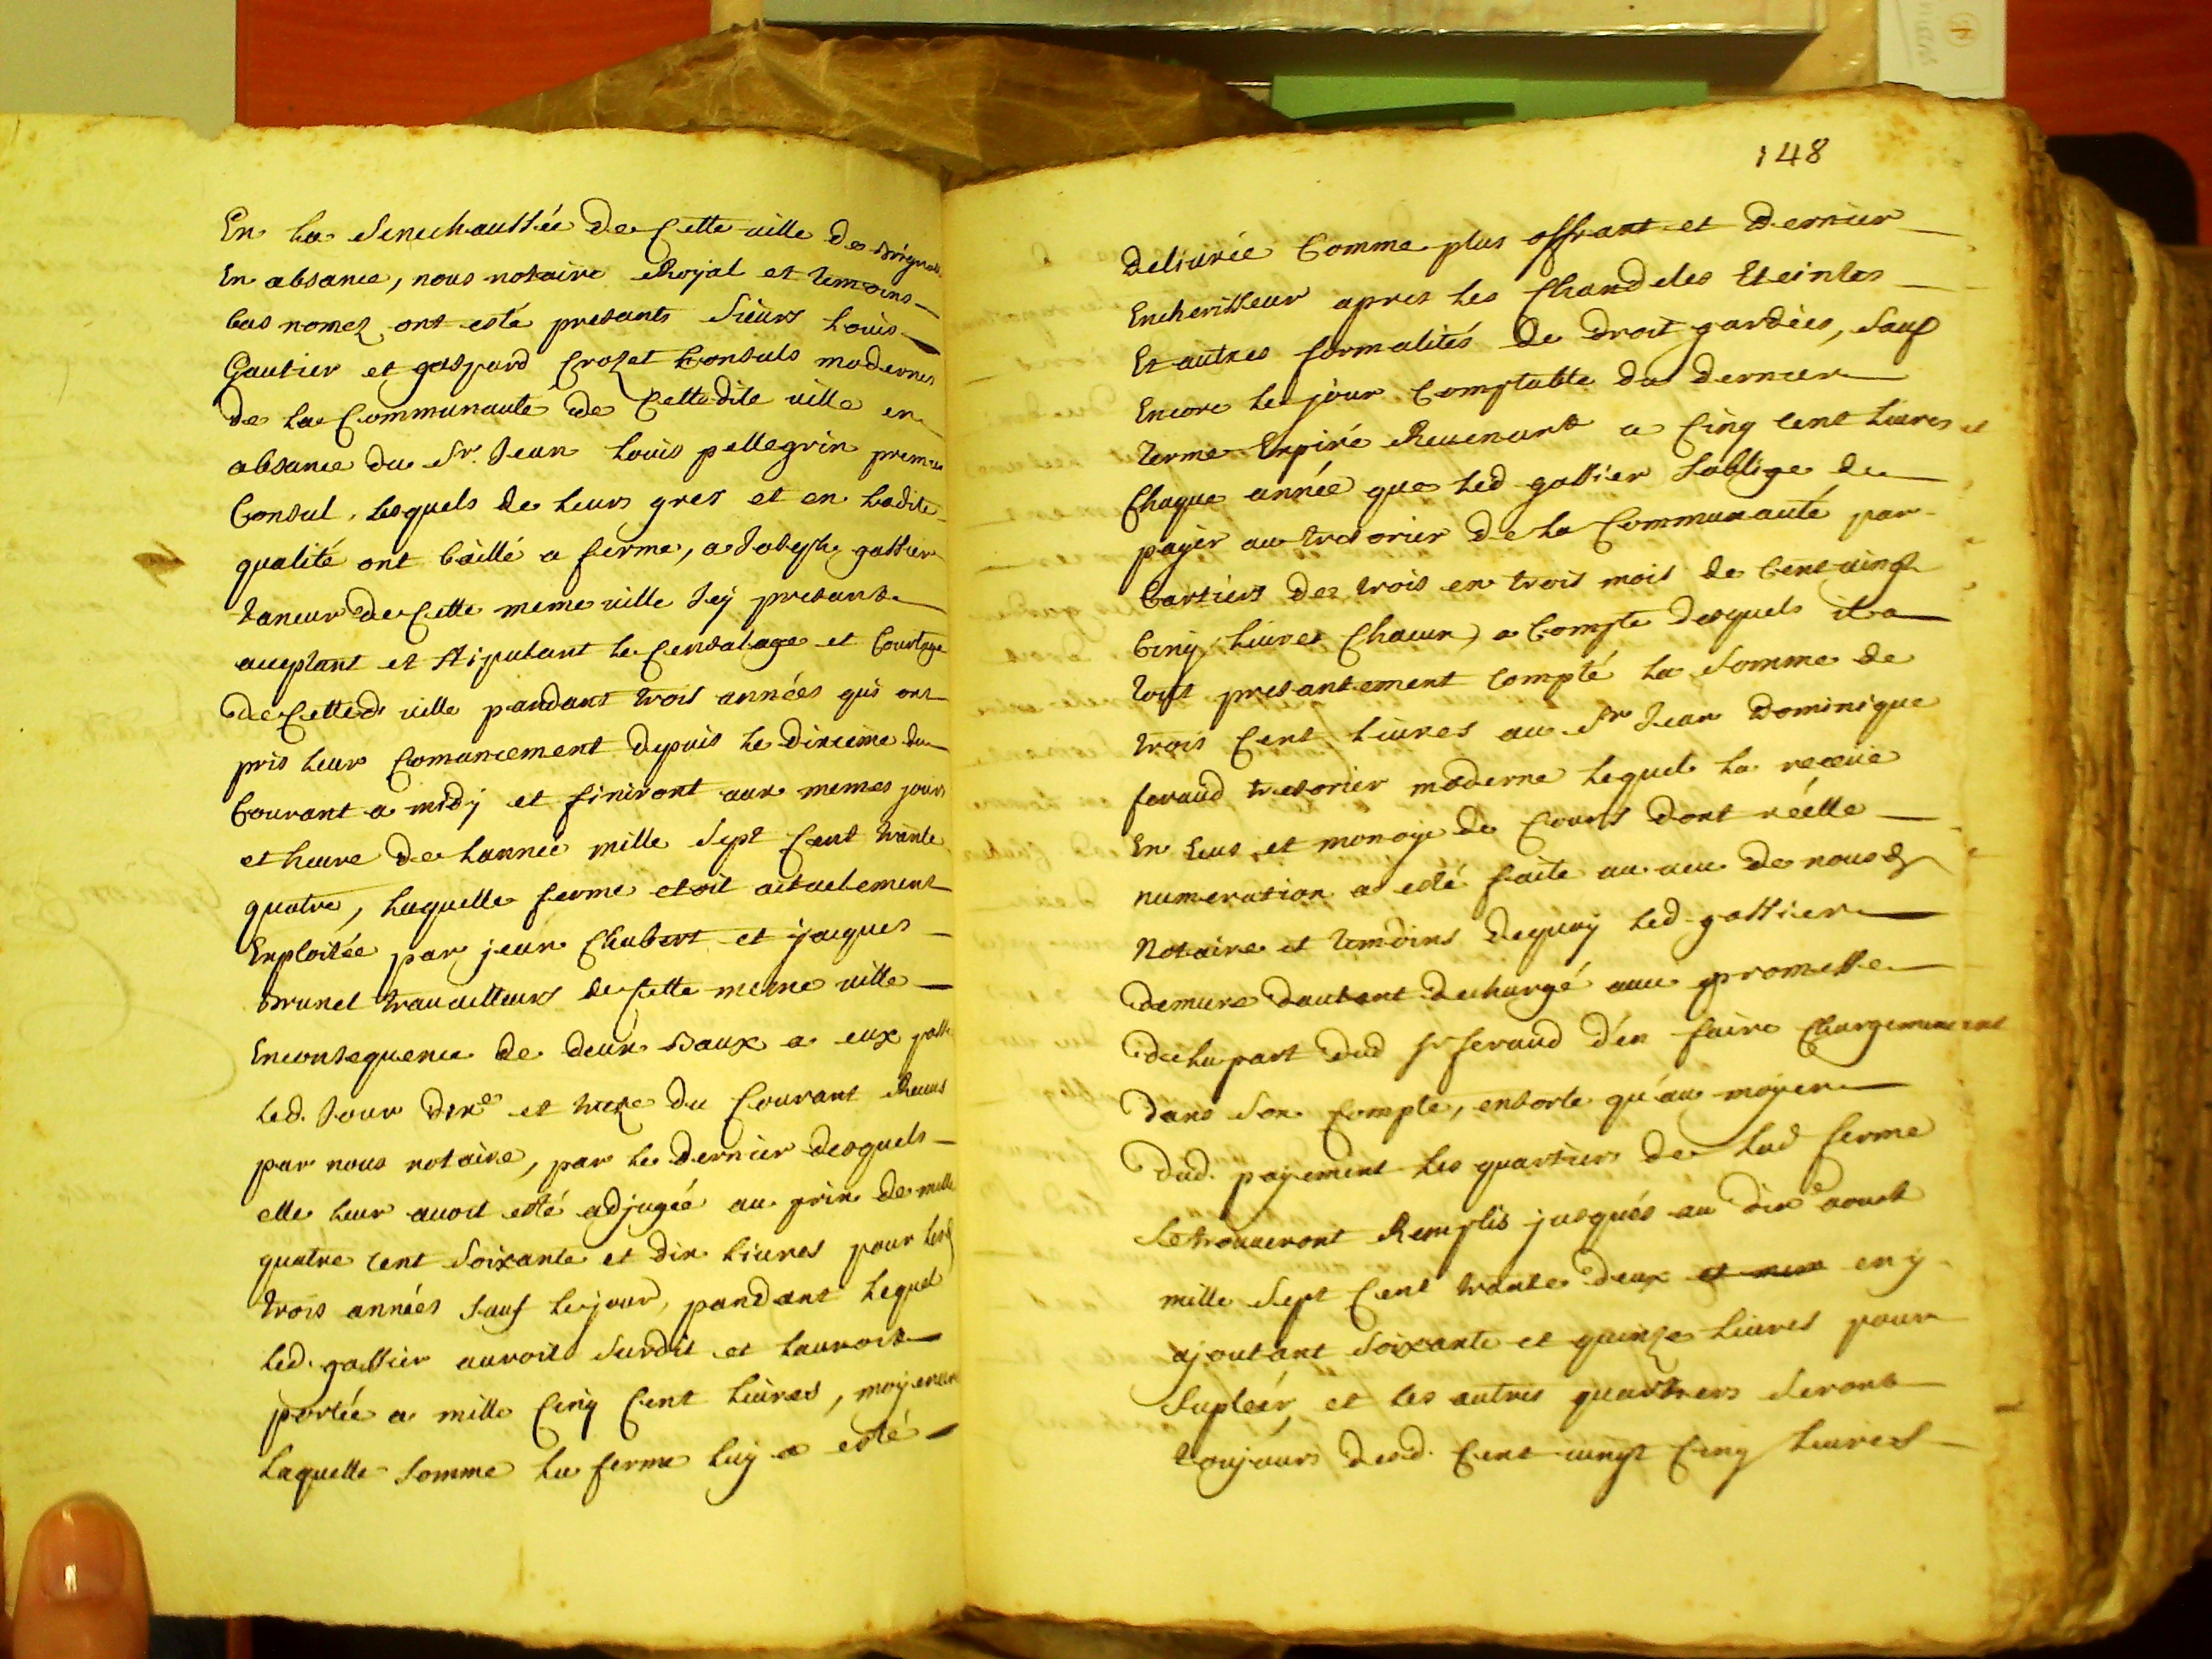 En la Senechaussée de Cette ville de Brignol
En absance, nous notaire Royal et temoins
bas nomez ont esté presants Sieurs Louis
Gautier et gaspard Crozet Consuls modernes
de la Communauté de Cettedite ville en
absance du Sr. Jean Louis pellegrin premier
Consul, lesquels de leurs grez et en ladite
qualité ont baillé a ferme, a Joseph gassier
taneur de Cette meme ville Icy presant
acceptant et stipulant le Censalage et Courtage
de Cetted. ville pandant trois années qui ont
pris leur Comancement depuis le dixieme du
Courant a midy et finiront aux memes jours
et heure de lannée mille Sept Cent trante
quatre, laquelle ferme etoit actuelement
Exploitée par jean Chabert et jacques
Brunel travailleurs de Cette meme ville
Enconsequence de deux Baux a eux passé
led. Jour dixe et treze du Courant Reçus
par nous notaire, par le dernier desquels
elle leur avoit esté adjugée au prix de mille
quatre cent Soixante et dix livres pour lesd
trois années Sauf le jour, pandant lequel
led. gassier auroit Surdit et lauroit
portée a mille Cinq Cent livres, moyenant
laquelle Somme la ferme luy a esté
148
delivrée Comme plus offrant et dernier
Encherisseur apres les Chandeles Eteintes
Et autres formalités de droit gardées, Sauf
Encore le jour Comptable du dernier
terme Expiré Revenant a Cinq Cent livres
Chaque année que led gassier Soblige de
payer au tresorier de la Communauté par
Cartiers de trois en trois mois de Cent vingt
Cinq livres Chacun, a Compte desquels il a
tout presantement Compté la Somme de
trois Cent livres au Sr Jean Dominique
feraud tresorier moderne lequel la receue
En Ecus et monoye de Cours dont réelle
numeration a esté faite au veu de nousd
Notaire et temoins dequoy led gassier
demure dautant dechargé avec promesse
de la part dud Sr feraud d'en faire Chargemeent
dans Son Compte, ensorte qu'au moyen
dud. payement les quartiers de lad ferme
Se trouveront Remplis jusqués au dixe aoust
mille Sept Cent trante deux en y
ajoutant Soixante et quinze livres pour
Supleér, et les autres quartiers Seront
toujours desd. Cent vingt Cinq livres